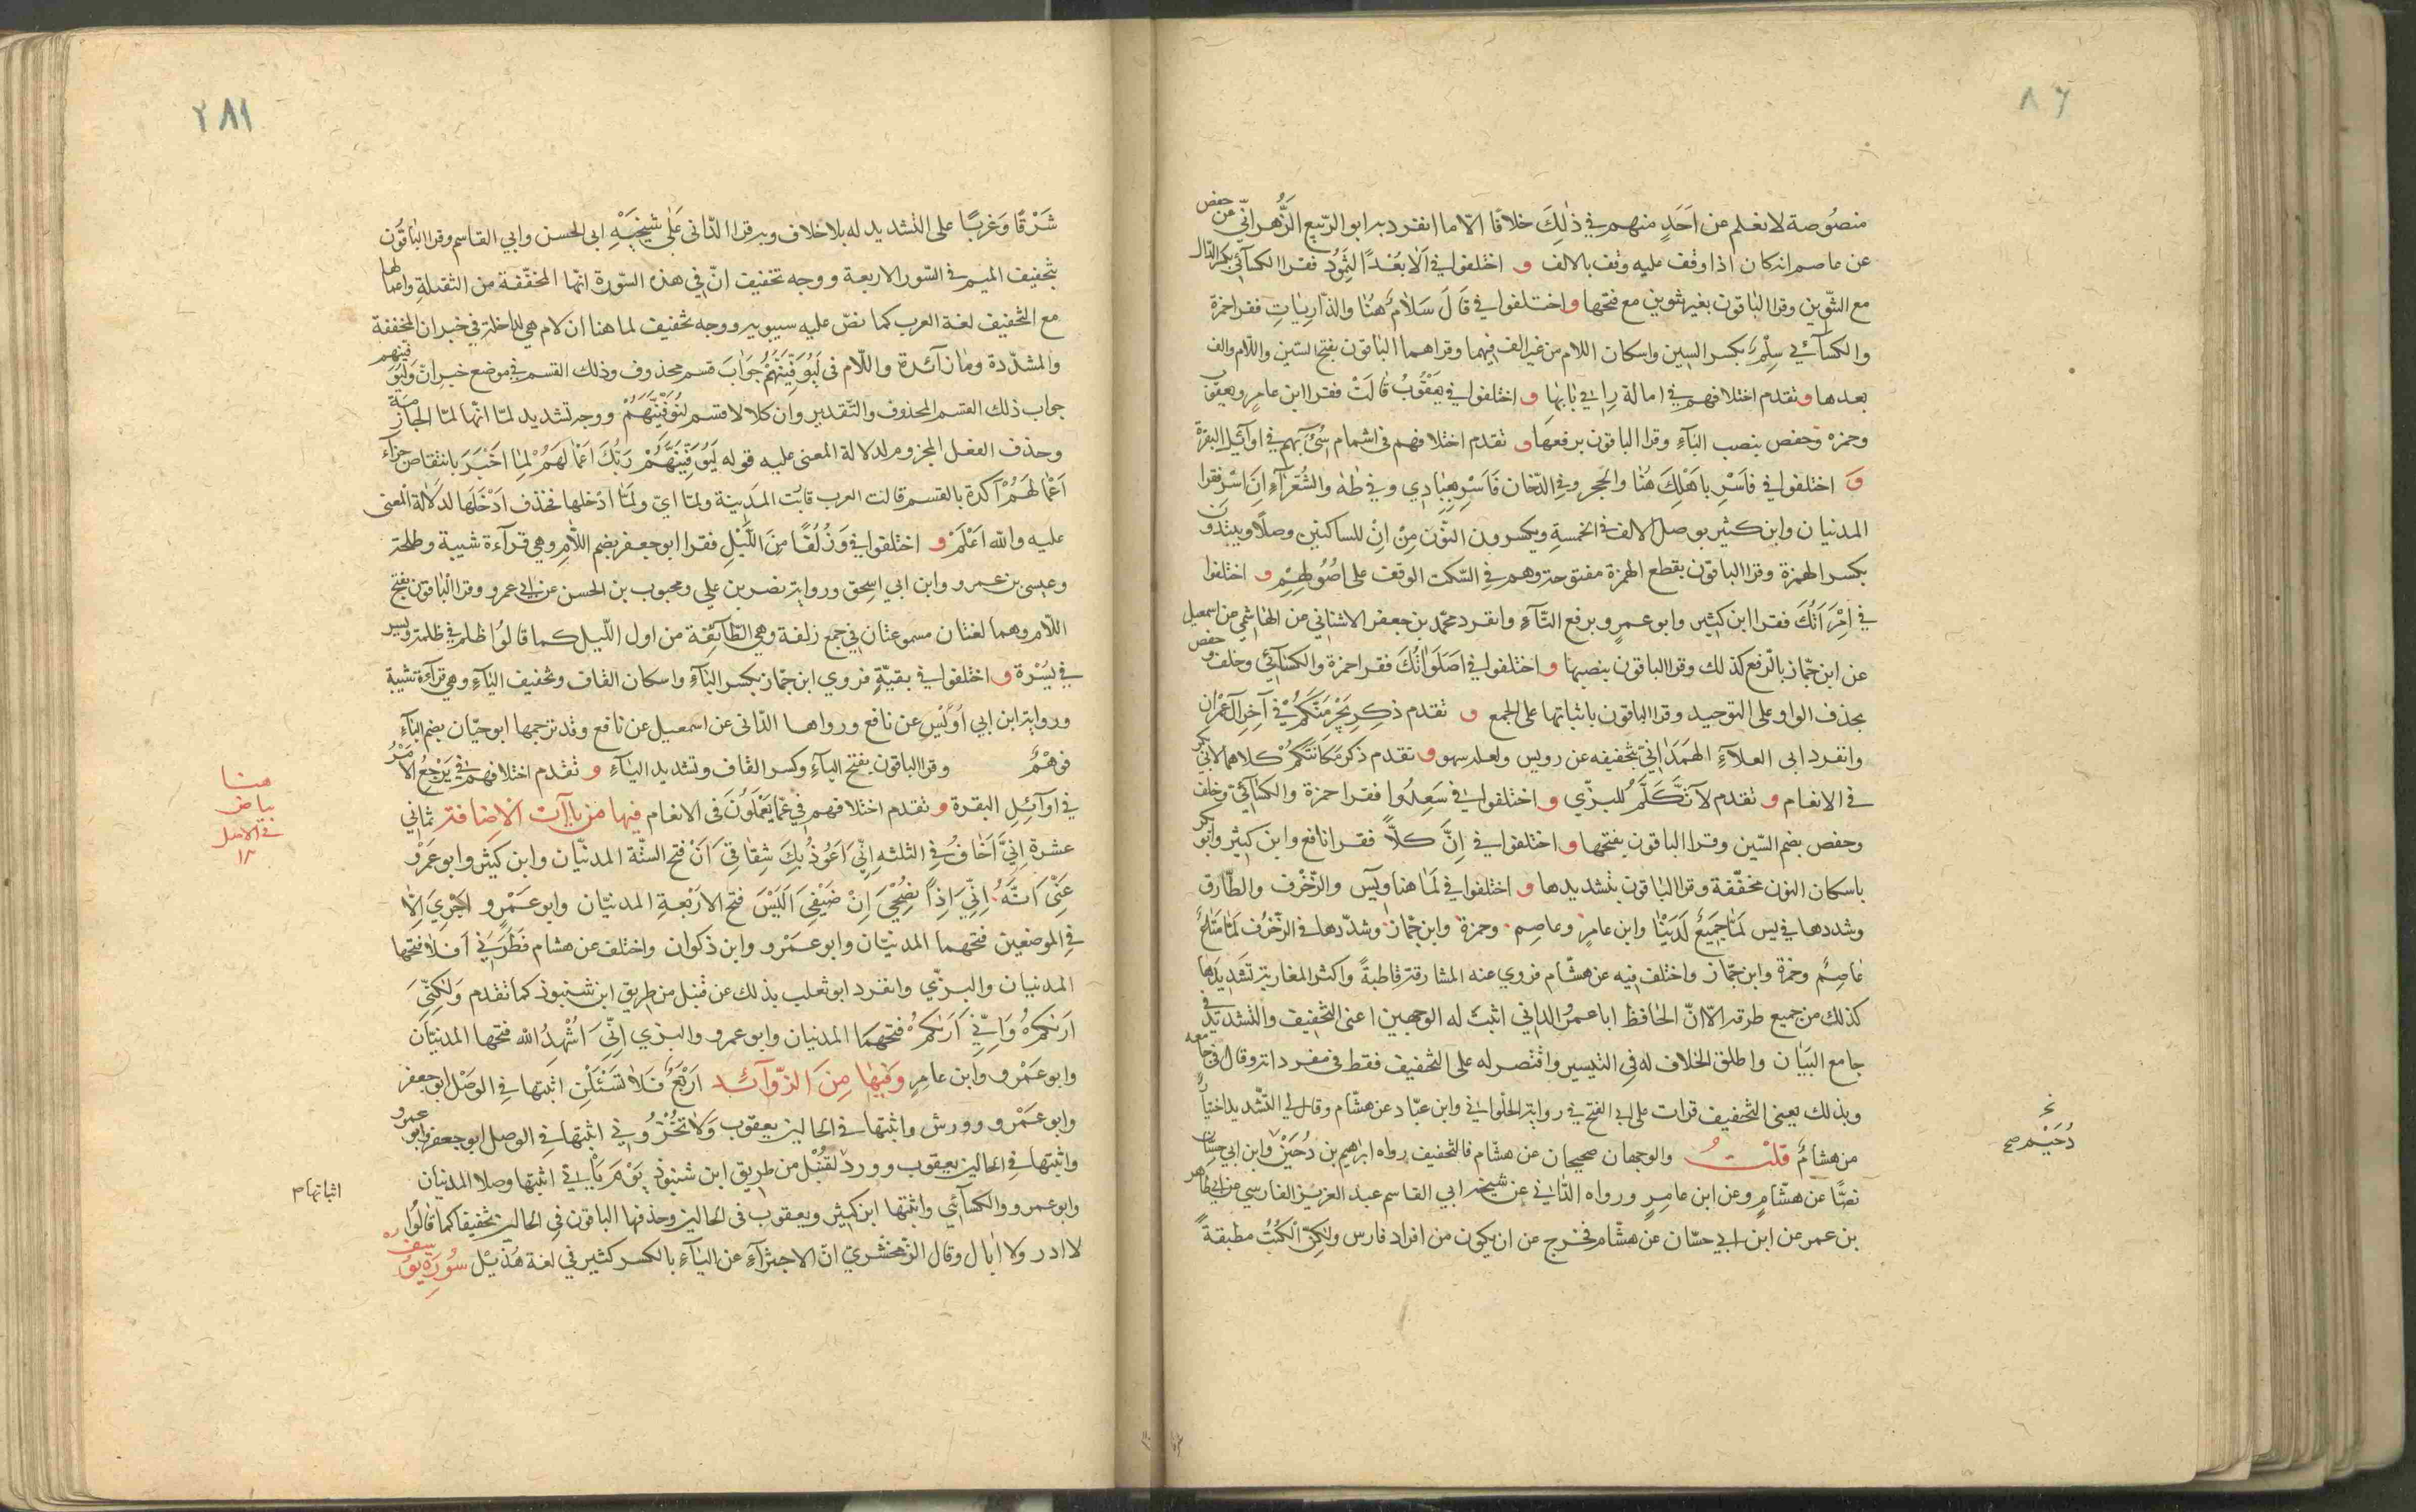 ٨٦
منصُوصة لا نعلم عن اَحَدٍ منهم في ذٰلِكَ خلافًا الّا ما انفرد به ابو الرّبيع الزَّهرانيّ عن حفص
عن عاصم انه كان اذا وقف عليه وقف بالالف و اختلفوا في اَلَا بُعْدًا لِثَمُودَ فقرا الكسآئيّ بكسر الدّال
مع التّنوين وقرا الباقون بغير تنوين مع فتحها واختلفوا في قَالَ سَلَامٌ هُنا والذّارِيات فقرا حمزة
والكسآئي سِلْمٌ بكسر السين واسكان اللام من غير الف فيهما وقراهما الباقون بفتح السّين واللّام والف
بعدها وتقدم اختلافهم في امالة رای في بابها و اختلفوا في يَعْقُوبُ قَالَتْ فقرا ابن عامر ويعقوب
وحمزه وحفص بنصب البآءِ وقرا الباقون برفعها و تقدم اختلافهم في اشمام سيٓءَ بهم في اوآئل البقرة
وَ اختلفوا في فَاَسْرِ باَهْلِكَ هُنا والحجر وفي الدّخان فَاَسْرِ بعِبَادِي وفي طٰهٰ والشُعَرآءِ اَنْ اَسْرِ فقرا
المدنيان وابن كثير بوصل الالف في الخمسةِ ويكسرون النّون مِنْ اَنْ للساكنين وصلًا ويبتدؤن
بكسر الهمزة وقرا الباقون بقطع الهمزة مفتوحة وهم في السّكت الوقف على اصُولهِمْ و اختلفوا
في اِمْرَاَتُكَ فقرا ابن كثير وابو عمرو برفع التّآءِ وانفرد محمّد بن جعفر الاشناني عن الهاشمي عن اسمعيل
عن ابن جمّاز بالرّفع كذلك وقرا الباقون بنصبها و اختلفوا في اَصَلَوَاتُكَ فقرا حمزة والكسآئي وخلف وحفص
بحذف الواو على التوحيد وقرا الباقون باثباتها على الجمع و تقدم ذكر يَجْرِمَنَّكُمْ في آخر آل عمران
وانفرد ابى العلآءِ الهَمَدَاني بتخفيفه عن رويس ولعله سهو و تقدم ذكر مَكَانَتَكُمْ كلاهما لابي بكر
في الانعام و تقدم لَا تَكَلَّمُ للبزّي و اختلفوا في سَعِدُوا فقرا حمزة والكسآئي وخلف
وحفص بضم السّين وقرا الباقون بفتحها و اختلفوا في اِنَّ كلًّا فقرا نافع وابن كثير وابو بكر
باسكان النون مخفّفة وقرا الباقون بتشديدها و اختلفوا في لَمَا هنا ويٓس والزّخرف والطّارق
وشددها في يس لَمَّا جَمِيعٌ لَدَيْنَا وابن عامرٍ وعاصم وحمزة وابن جمّاز وشدّدها في الزّخرُف لَمَّا مَتَاعُ
عَاصِمٌ وحمزة وابن جمّاز واختلف فيه عن هشّام فروي عنه المشارقة قاطبةً واكثر المغاربة تَشديدَها
كذلك من جميع طرقه الّا انّ الحافظ ابا عمرو الداني اثبتَ له الوجهين اعنى التّخفيف والتّشديد في
جامع البَيَان واطلق الخلاف له في التيسير واقتصر له على التّخفيف فقط في مفرداته وقال في جامعه
وبذلك يعني التّخفيف قرات على ابي الفتح في رواية الحُلواني وابن عبّاد عن هشّام وقال لي التّشديد اختيار
من هشّامٍ قلتُ والوجهان صحيحان عن هشّام فالتخفيف رواه ابرٰهيم بن دُحَيْنٍ وابن ابي حسّان
نصًّا عن هشّامٍ وعن ابن عامرٍ ورواه الدّاني عن شيخه ابي القاسم عبد العزيز الفارسي عن ابي طاهر
بن عمر عن ابن ابي حسّان عن هشّام فخرج عن ان يكون من افراد فارس ولٰكنّ الكُتُبُ مطبقةً
نخ
دُحَيْم صح
٢٨١
شَرْقًا وَغربًا على التشديد له بلا خلاف وبه قرا الدّانى عَلٰى شَيخَيْهِ ابى الحسن وابي القاسم وقرا الباقُون
بتخفيف الميم في السّور الاربعة ووجه تخفيف انّ في هذه السّورة انّها المخفّفة من الثقيلةِ واعمالها
مع التّخفيف لغة العرب كما نصّ عليه سيبويه ووجه تخفيف لما هنا ان لام هي للداخلة في خبر ان المخففة
والمشدّدة وما زآئدة واللّام فى لَيُوَفِّيَنَّهُمْ جَوَابَ قسم محذوف وذلك القسم في موضع خبر انّ وَلَيُوَفِّيَنَّهم
جواب ذلك القسم المحذوف والتّقدير وان كلا لا قسم لَيُوَفِّيَنَّهُمْ ووجه تشديد لمّا انّها لمّا الجازمة
وحذف الفعل المجزوم لدلالة المعنى عليه قوله لَيُوَفِّيَنَّهُمْ رَبُّكَ اَعْمَالَهُمْ لِمَا اَخْبَرَ بانتقاص جزآء
اَعْمَالَهُمْ اَكّدهُ بالقسم قالت العرب قابَتْ المَدينة ولمّا اي ولمّا اَدْخلها فحذف اَدْخَلَها لدلالة المعنى
عليه والله اَعْلَمُ و اختلفوا في وَزُلَفًا مِنَ اللَّيْلِ فقرا ابو جعفر بضم اللّامِ وهي قرآءة شيبة وطلحة
وعيسى بن عمرو وابن ابي اسحٰق ورواية نصر بن علي ومحبوب بن الحسن عن ابي عمرو وقرا الباقون بفتح
اللّام وهما لغتان مسموعتان في جمع زلفة وهي الطّآئِفة من اول اللّيل كما قالُوا ظلم في ظلمة ويسر
في يُسْرة و اختلفوا في بقيّةٍ فروي ابن جمّاز بكسر البَآءِ واسكان القاف وتخفيف اليَآءِ وهي قرآءة شيبة
ورواية ابن ابي اُوَيْسٍ عن نافع ورواها الدّانى عن اسمعيل عن نافع وقد ترجمها ابو حيّان بضم البآءِ
فوَهْمٌ وقرا الباقون بفتح البآءِ وكسر القاف وتشديد اليَآءِ و تقدم اختلافهم في يَرْجِعُ الاَمْرُ
في اوآئِلِ البقرة و تقدم اختلافهم في عَمّا يَعْمَلُونَ في الانعام فيها من يآات الاضافة ثمانی
عشرة اِنِّيَ اَخَافُ في الثلثه اِنِّيَ اَعُوذُ بِكَ شِقَاقِيَ اَنْ فتح الستّة المدنيّان وابن كثير وابو عَمْرو
عَنِّيَ اَنَّهُ اِنِّيَ اِذًا نُصْحِيَ اِنْ ضَيْفِيَ اَلَيْسَ فتح الاَرْبَعَةِ المدنيّان وابو عَمْرو اَجْرِيَ اِلَّا
في الموضعين فتحهما المدنيّان وابو عَمْرو وابن ذكوان واختلف عن هشام فَطَرَنِيَ اَفَلَا فتحها
المدنيان والبزّي وانفرد ابو ثعلب بذلك عن قنبل من طريق ابن شنبوذ كما تقدم وَلٰكِنِّيَ
اَرٰكمْ وَاِنِّيَ اَرٰكُمْ فتحهما المدنيان وابو عمرو والبزي اِنِّيَ اُشْهِدُ الله فتحها المدنيان
وابو عَمْرو وابن عامرٍ وَفيهَا مِنَ الزّوآئد اَرْبَعٌ فَلَا تَسْئَلْنِ اثبتها في الوصل ابو جعفر
وابو عَمْرو وورش واثبتها في الحالين يعقوب وَلَا تُخْزُونِي اثبتها في الوصل ابو جعفر وابو عمرو
واثبتها في الحالين يعقوب وورد لقنبل من طريق ابن شنبوذ يَوْمَ يَاْتِي اثبتها وصلا المدنيان
وابو عمرو والكسآئي واثبتها ابن كثير ويعقوب في الحالين وحذفها الباقون في الحالين تخفيفا كما قالُوا
لا ادر ولا ابال وقال الزّمخشريّ انّ الاجتزآءِ عن اليآءِ بالكسر كثير في لغة هُذَيْل سُورَة يُوسف
هنا
بياض
في الاصل
١٢
اثباتها م